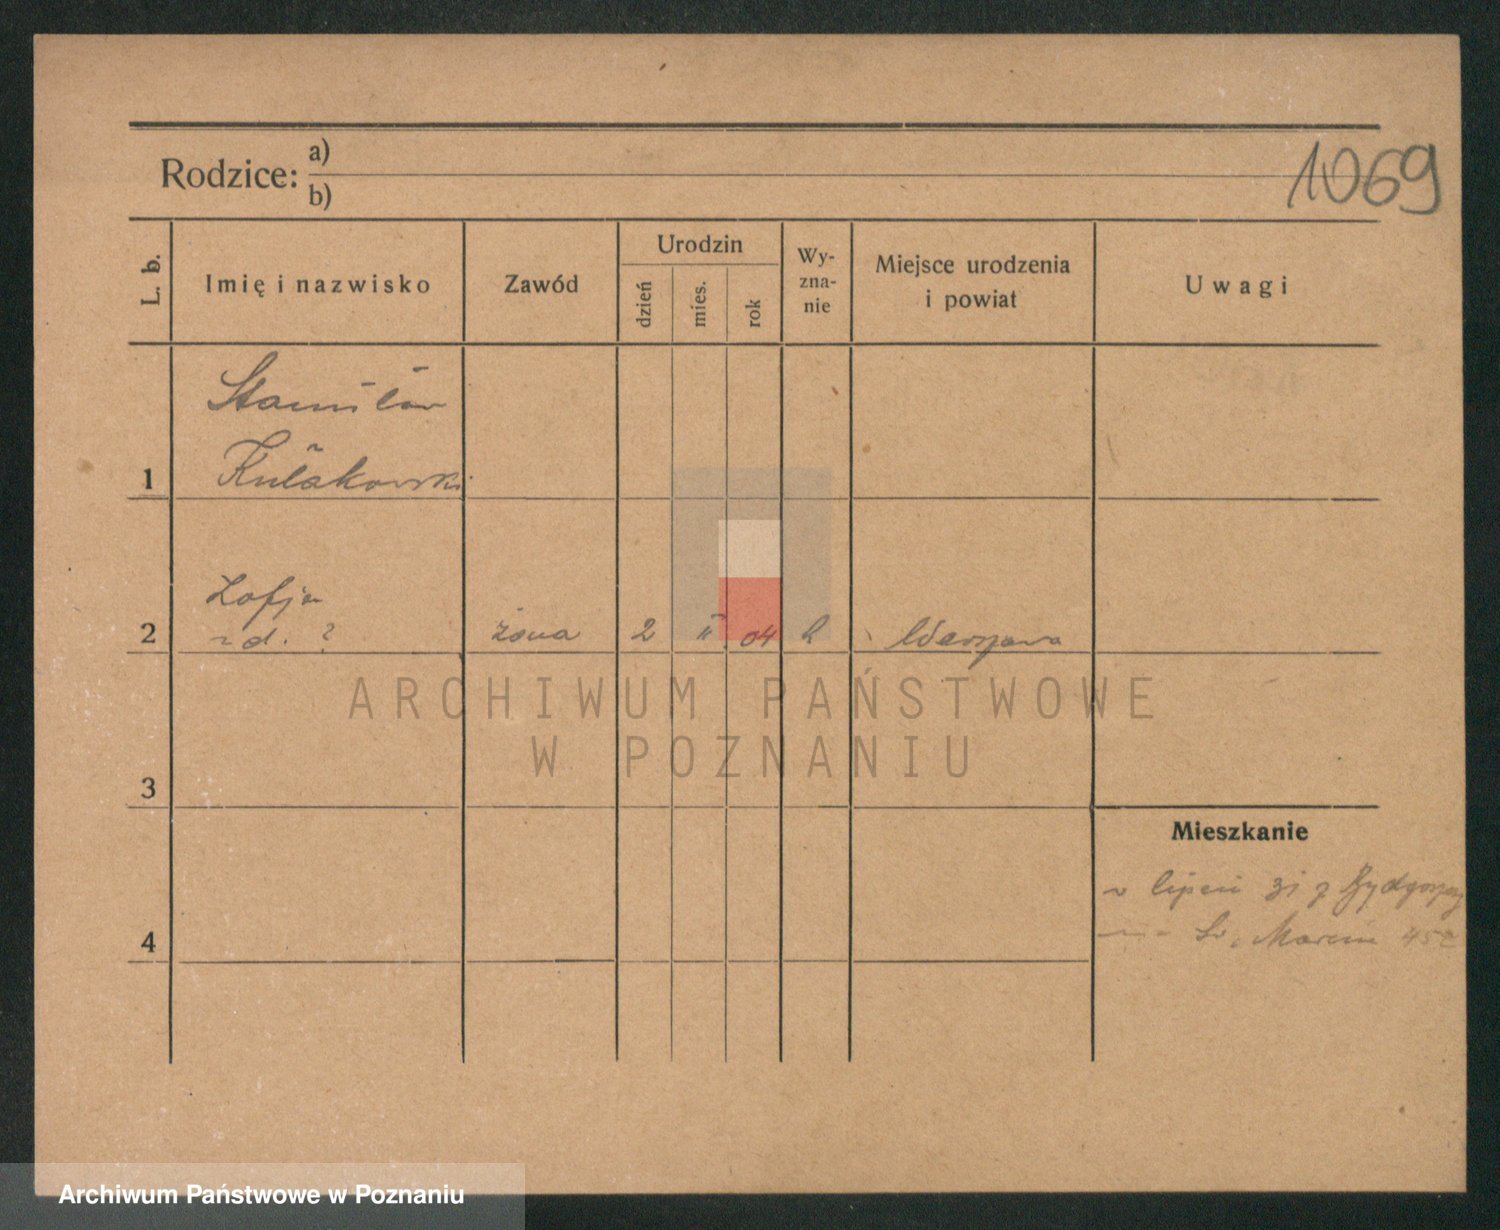 Rodzice: a)
b)
1069
L. b.
Imię i nazwisko
Zawód
Urodzin
dzień
mies.
rok
Wy-
zna-
nie
Miejsce urodzenia
i powiat
Uwagi
Stanisław
Kułakowski
1
Zofja
zd. ?
2
żona
2
II
04
k
Warszawa
ARCHIWUM PAŃSTWOWE
W POZNANIU
3
Mieszkanie
w lipcu 31 z Bydgoszczy
Św. Marcin 45
4
Archiwum Państwowe w Poznaniu